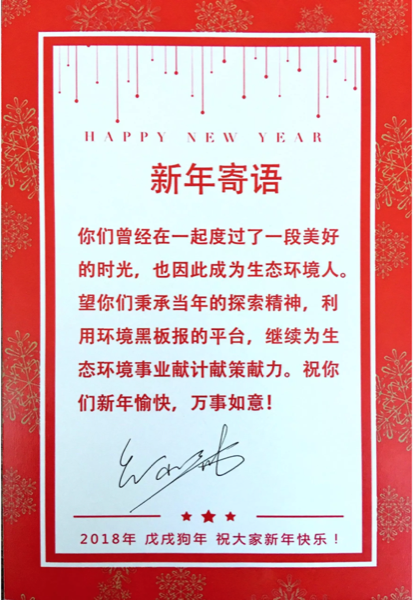 HAPPY NEW YEAR
新年寄语
你们曾经在一起度过了一段美好
的时光，也因此成为生态环境人。
望你们秉承当年的探索精神，利
用环境黑板报的平台，继续为生
态环境事业献计献策献力。祝你
们新年愉快，万事如意！
2018年 戊戌狗年 祝大家新年快乐！